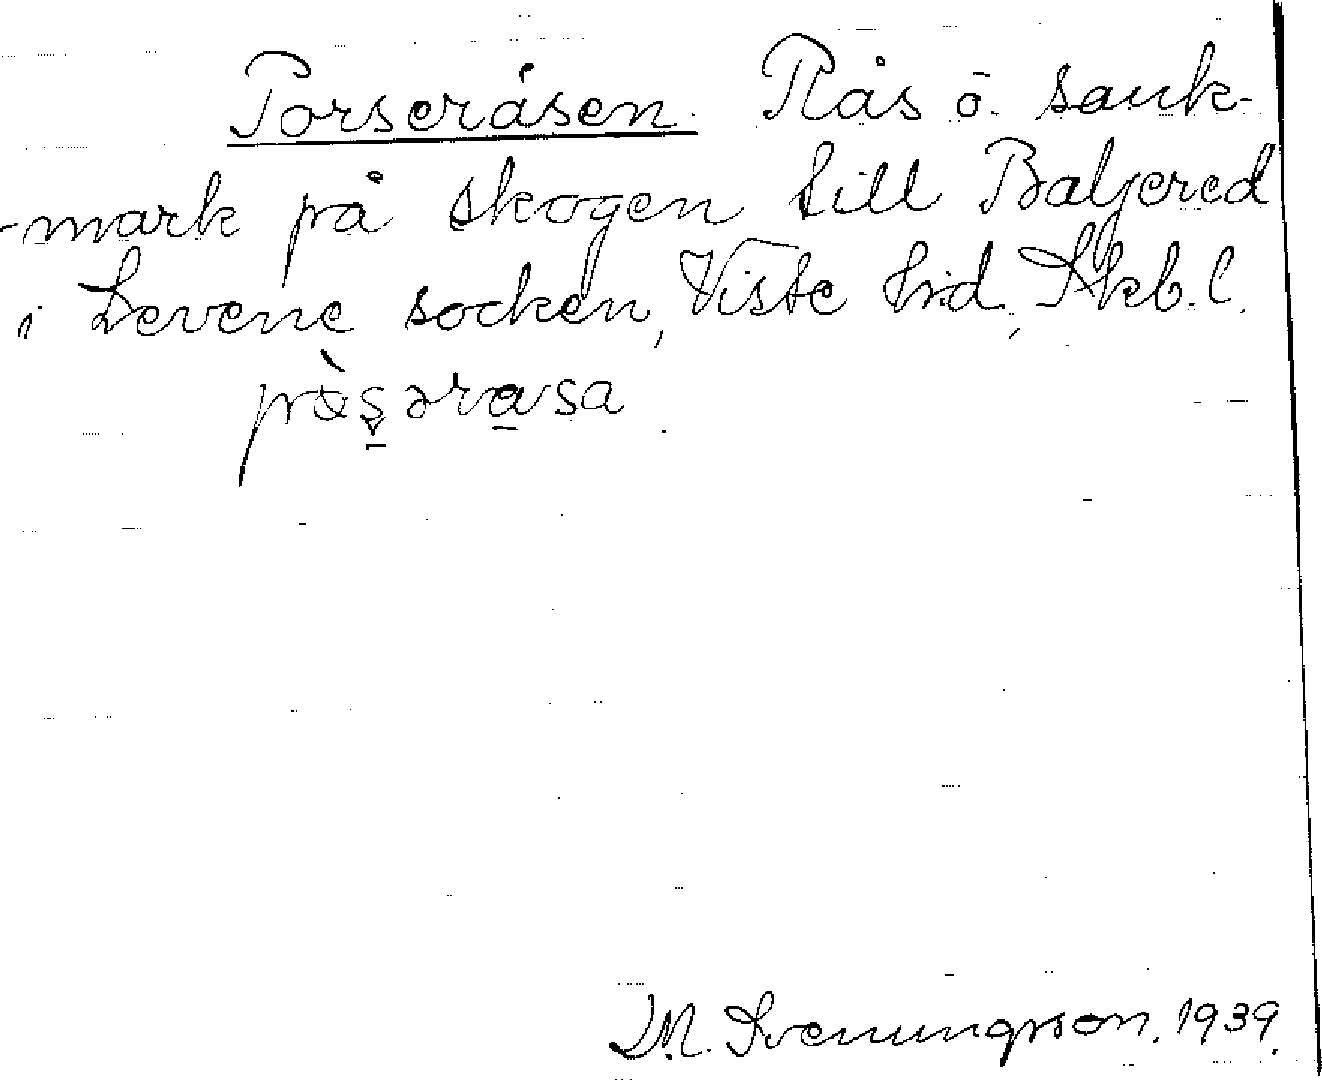 Porseråsen. Rås ō. sank-
-mark på skogen till Baljered
i Levene socken, Viste hrd, Skb. l.
pàs̭ərasa
D.M. Svenungsson. 1939.